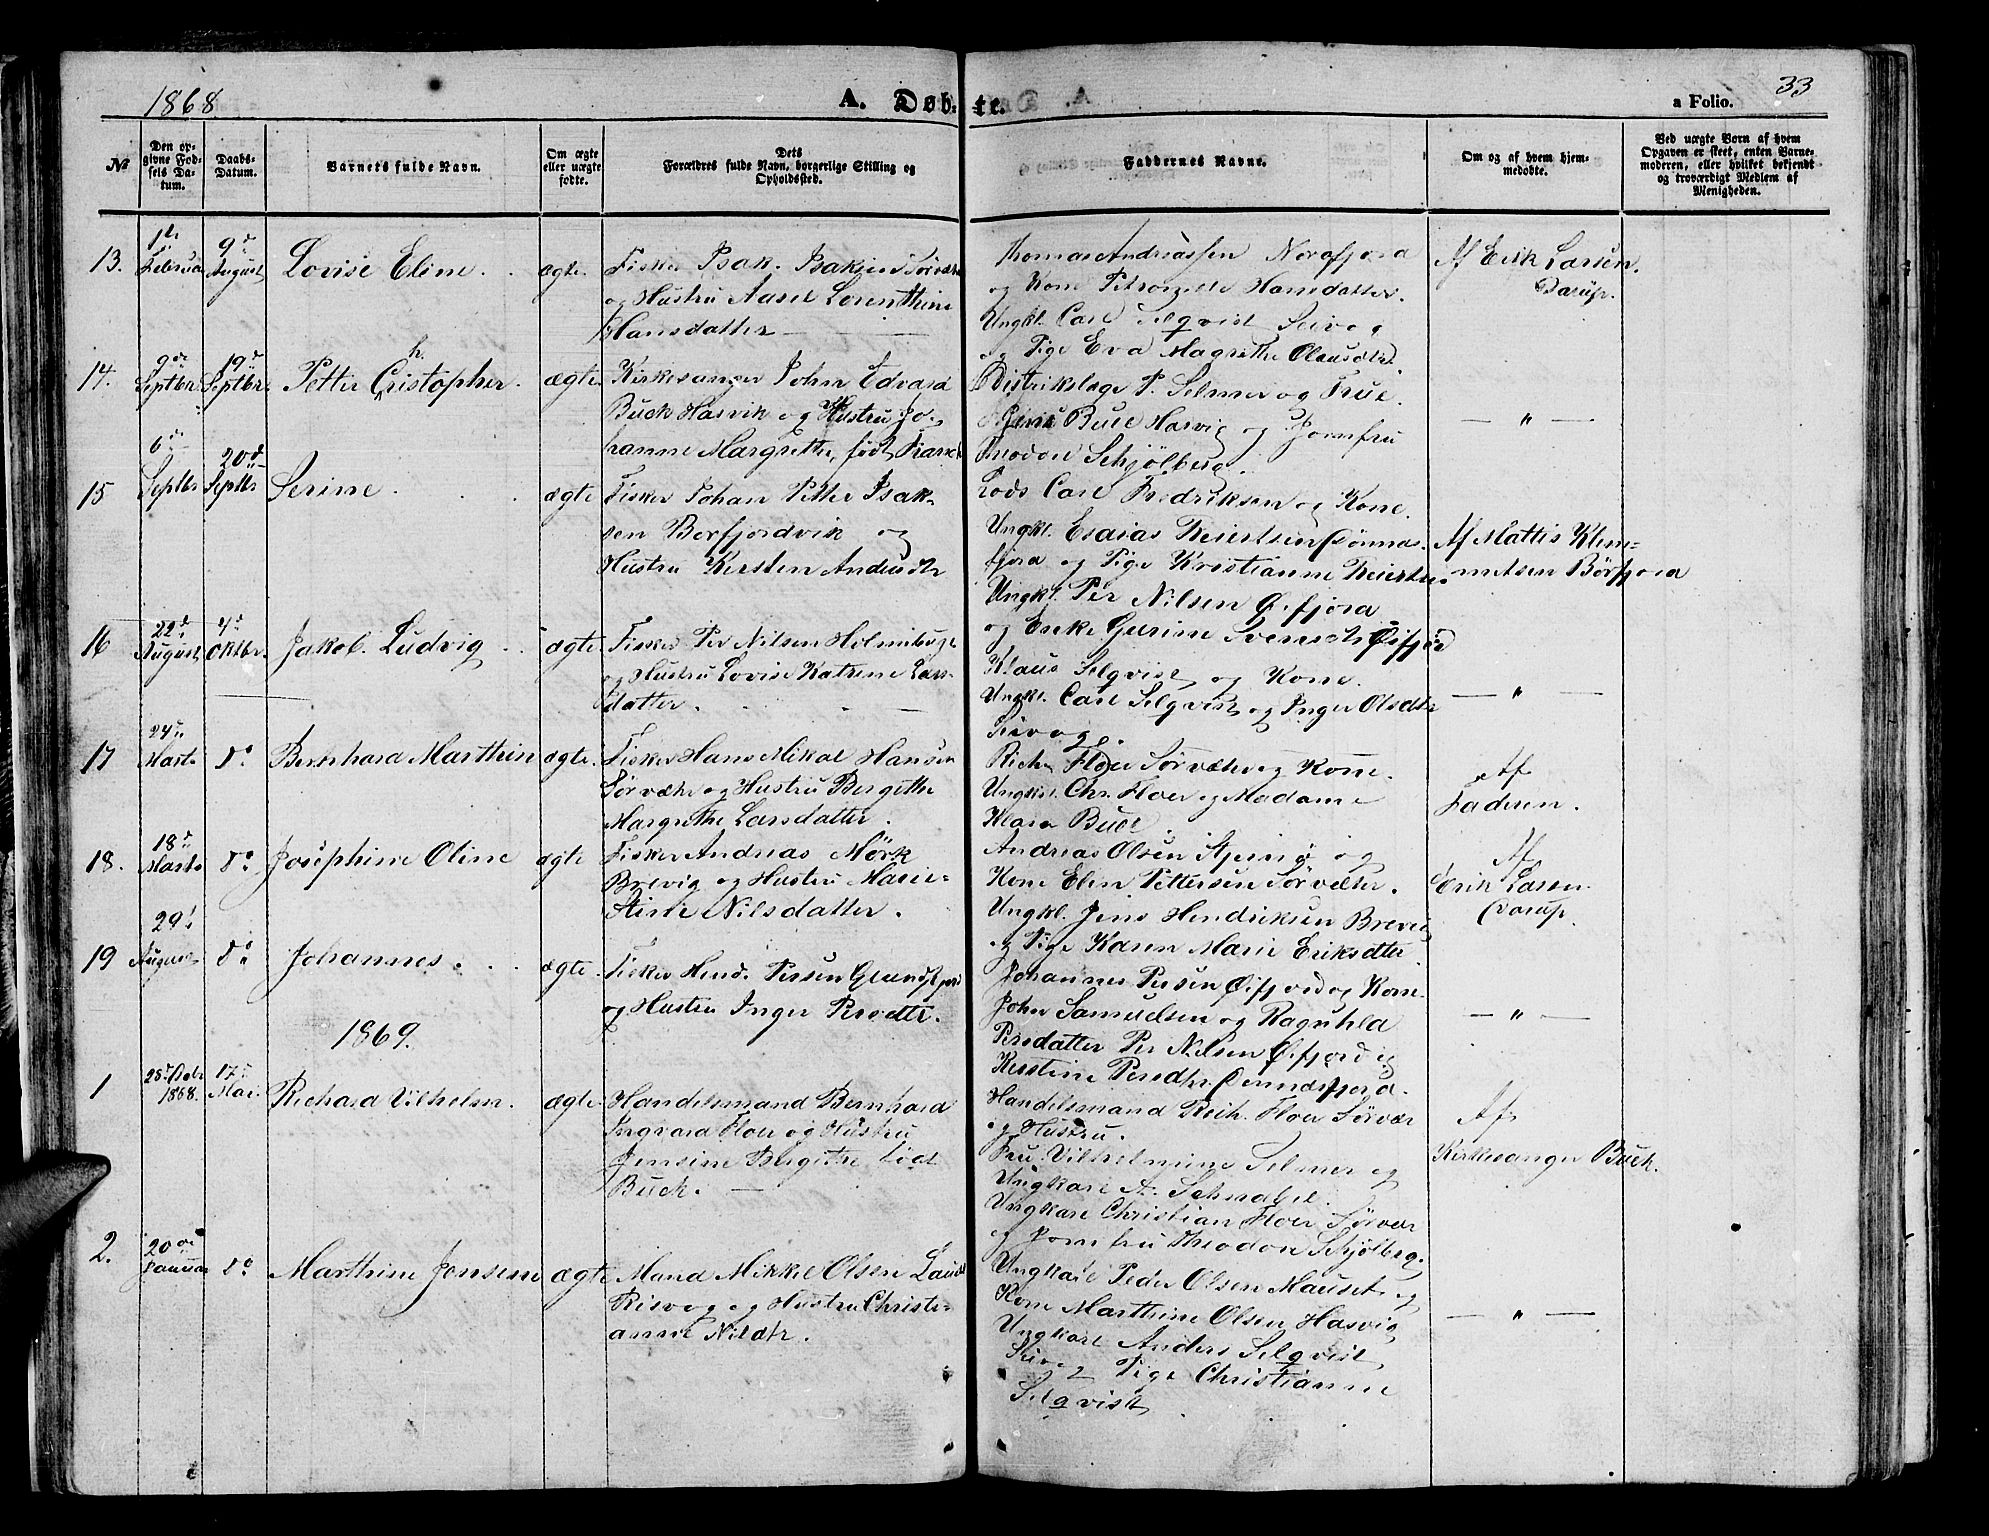 1868
A. Døbte.
a Folio.
33
№
Den opgivne Fødsels Datum.
Daabs-Datum.
Barnets fulde Navn.
Om ægte eller uægte fødte.
Dets Forældres fulde Navn, borgerlige Stilling og Opholdssted.
Faddernes Navne.
Om og af hvem hjemmedøbte.
Ved uægte Børn af hvem Opgaven er skeet, enten Barnemoderen, eller hvilket bekjendt og troværdigt Medlem af Menigheden.
13.
1de Februar
9d August
Lovise Eline.
ægte.
Fisker Isak Isaksen Sørvær
og Hustru Aasel Lorenthine
Hansdatter
Thomas Andreassen Norafjora
og Kone Petronelle Hansdatter.
Ungkl. Carl Selqvist Seivog
og Pige Eva Magrethe Olausdtr.
Af Erik Larsen
Darup.
14.
9de Septbr.
19d Septbr
Petter Christopher.
ægte.
Kirkesanger John Edvard
Buck Hasvik og Hustru Jo-
hanne Margrethe, født
Distriktslæge P. Selmer og Frue.
Buck Hasvig og Jomfru
Theodon Schjølberg.
— " —
15
6d Septbr
20d Septbr
Serine.
ægte
Fisker Johan Petter Isak-
sen Børfjordvik og
Hustru Kersten Andersdtr
Lods Carl Fredriksen og Kone.
Ungkl. Esaias Reiertsen Dønnas-
fjora og Pige Kristianne Reierts
Af Mattis Klem-
metsen Børfjora
16
22d August
4d Oktbr.
Jakob Ludvig
ægte.
Fisker Per Nilsen Holmibugt
og Hustru Lovise Katrine Lars-
datter.
Ungkl. Per Nilsen Øifjora
og Enke Gurine Svensdtr Øifjord
Klaus Selqvist og Kone.
Ungkl. Carl Selqvist og Inger Olsdtr
Seivog.
— " —
17
24d Marts
do
Bernhard Marthin
ægte.
Fisker Hans Mikal Hansen
Sørvær og Hustru Bergitte
Margrethe Larsdatter.
Rich. Floer Sørvær og Kone.
Ungkl. Chr. Floer og Madame
Klara Buck.
Af
Faderen.
18.
18d Marts
do
Josephine Oline
ægte
Fisker Andreas Mörk
Brevig og Hustru Marie
Stine Nilsdatter.
Andreas Olsen Stjernø og
Kone Elen Pettersen Sørvær.
Ungkl. Jens Hendriksen Brevig
og Pige Karen Marie Eriksdtr.
Af
Erik Larsen
Darup.
19
29d August
do
Johannes.
ægte.
Fisker Hend. Persen Grundfjord
og Hustru Inger Persdtr.
Johannes Persen Øifjord og Kone
John Samuelsen og Raguhld
Persdatter Per Nilsen Øifjord og
Kirstine Persdtr. Dønnasfjord.
— " —
1869.
1
28d 1868.
17d Mai.
Richard Vilhelm.
ægte.
Handelsmand Bernhard
Ingvard Floer og Hustru
Jensine Bergithe født
Buck. —
Handelsmand Reich. Floer Sørvær
og Hustru.
Fru Vilhelmine Selmer og
Ungkarl A. Schnabel.
Ungkare Christian Floer Sørvær
og Jomfru Theodon Schjølberg.
Af
Kirkesanger Buck.
2.
20de Januar
do
Marthine Jensine
ægte
Mand Mikkel Olsen
Risvog og Hustru Christi-
anne Nilsdtr.
Ungkarl Peder Olsen Mauset og
Kone Marthine Olsen Hasvig
Ungkarl Anders Selqvist
Seivog Pige Christianne
Selqvist
— " —